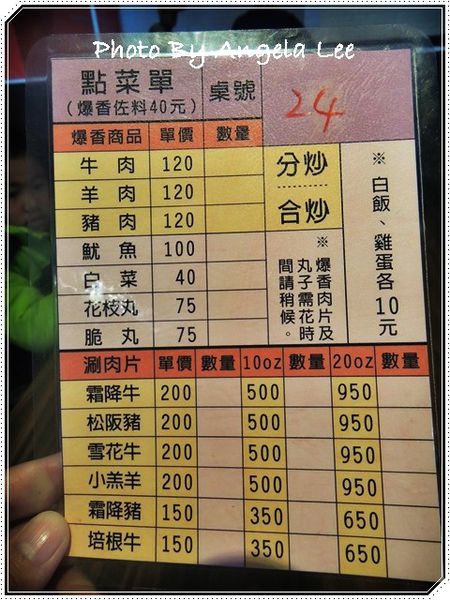 Photo By Angela Lee
點菜單 桌號 24
(爆香佐料40元)
爆香商品 單價 數量
牛肉 120
羊肉 120
豬肉 120
魷魚 100
白菜 40
花枝丸 75
脆丸 75
分炒
合炒
※爆香肉片及
丸子需花時
間請稍候。
※白飯、雞蛋各10元
涮肉片 單價 數量 10oz 數量 20oz 數量
霜降牛 200 500 950
松阪豬 200 500 950
雪花牛 200 500 950
小羔羊 200 500 950
霜降豬 150 350 650
培根牛 150 350 650